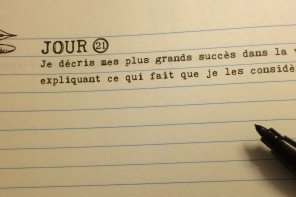 JOUR 21
Je décris mes plus grands succès dans la
expliquant ce qui fait que je les